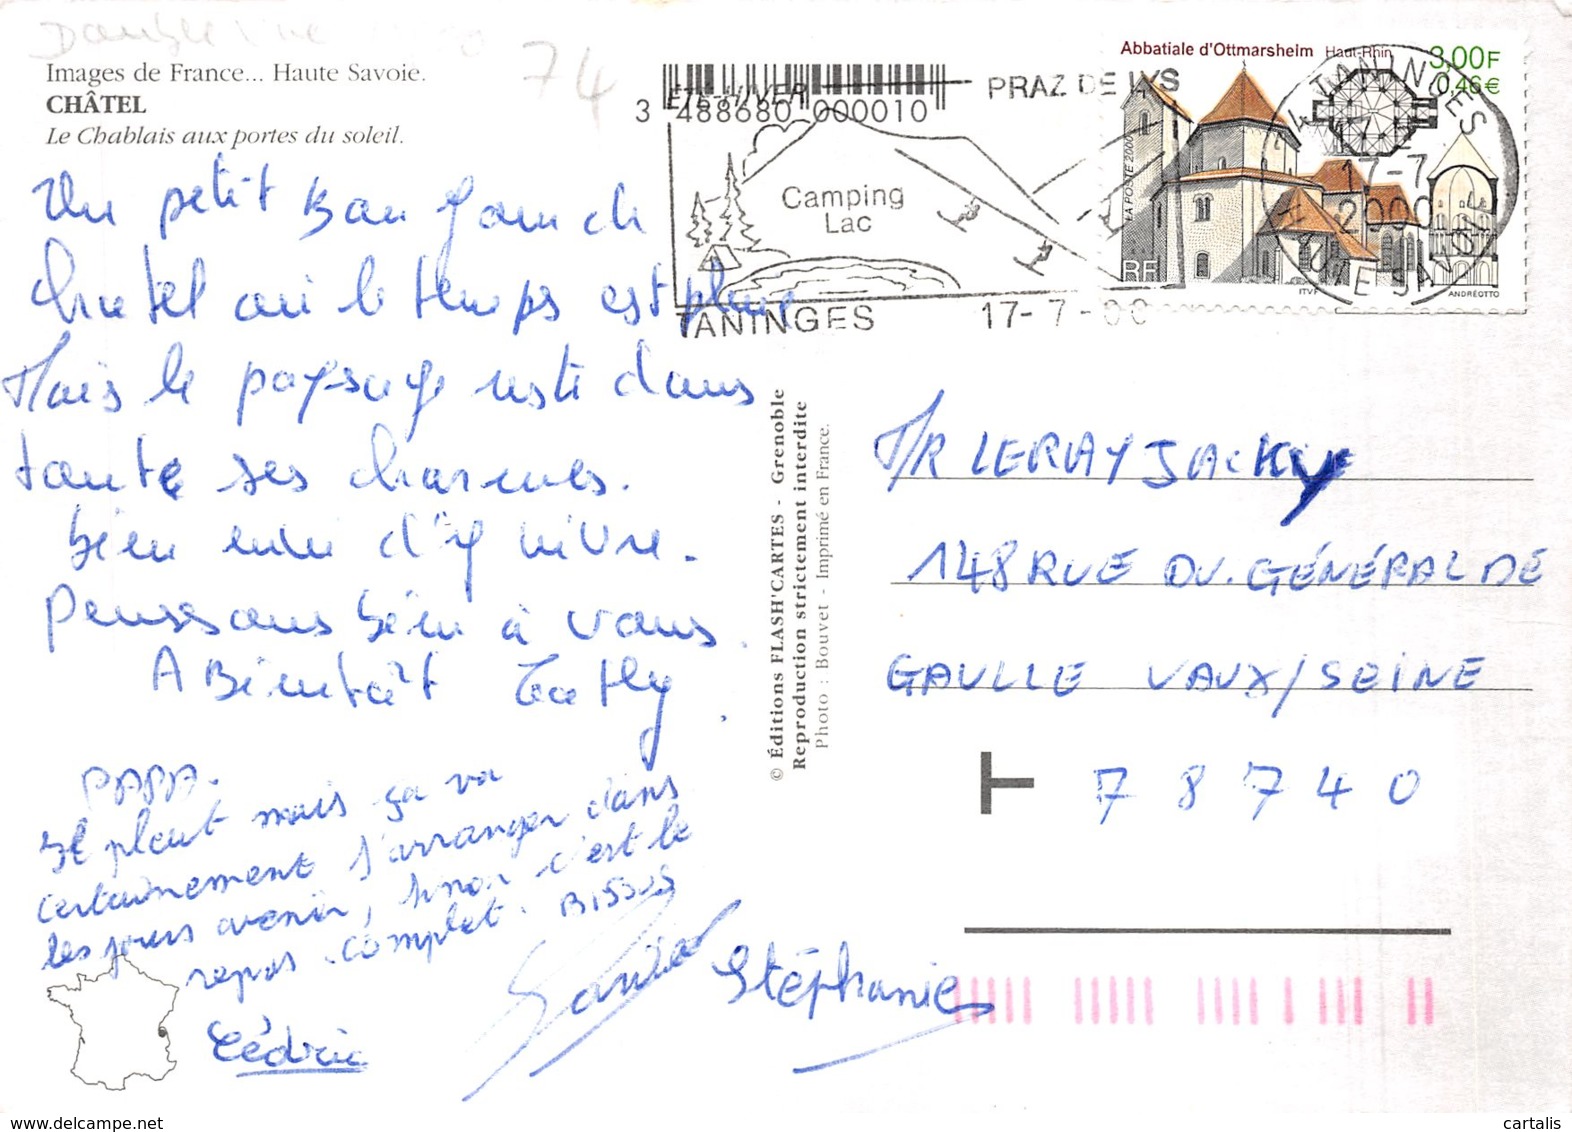 74
Images de France... Haute Savoie.
CHÂTEL
Le Chablais aux portes du soleil.
Un petit Bonjour de
Chatel où le temps est pluie
Mais le paysage reste dans
toute ses charmes.
bien envie d'y vivre.
Penssons bien à vous.
A Bientôt Cathy.
PAPA.
Il pleut mais ça va
certainement s'arranger dans
les jours avenir, sinon c'est le
repos complet. BISOUS
Cédric
Stéphanie
© Éditions FLASH'CARTES - Grenoble
Reproduction strictement interdite
Photo : Bouvet - Imprimé en France.
3 488680 000010
ÉTÉ-HIVER
PRAZ DE LYS
Camping
Lac
TANINGES
17-7-00
Abbatiale d'Ottmarsheim Haut-Rhin
3,00F
0,46€
LA POSTE 2000
RF
ITVF
ANDRÉOTTO
74 TANINGES
17-7
2000
HAUTE SAVOIE
M/R LERAY JACKY
148 RUE DU. GÉNÉRAL DE
GAULLE VAUX/SEINE
T 78740
cartalis